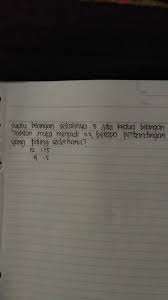 suatu bilangan selisihnya 3 jika kedua bilangan
maka menjadi 27, berapa perbandingan
yang paling sederhana?
12 : 15
4 : 5